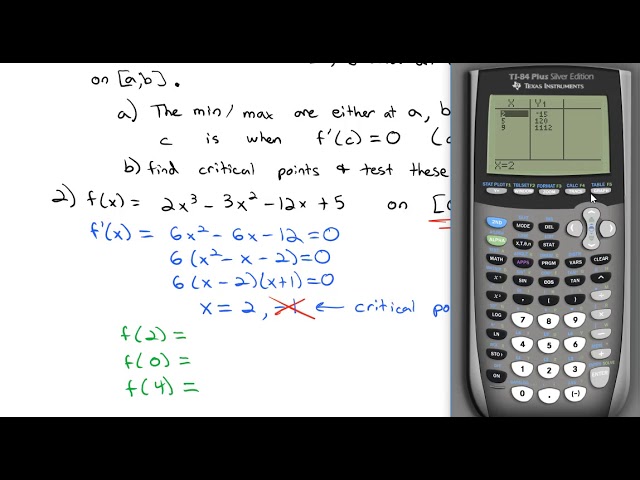 on [a,b].
a) The min/max are either at a, b
c is when f'(c)=0 (
b) find critical points & test these
2) f(x) = 2x³ - 3x² - 12x + 5 on [
f'(x) = 6x² - 6x - 12 = 0
6(x² - x - 2) = 0
6(x - 2)(x+1) = 0
x = 2, -1 ← critical po
f(2) =
f(0) =
f(4) =
TI-84 Plus Silver Edition
TEXAS INSTRUMENTS
X Y1
2 -15
5 120
9 1112
X=2
STAT PLOT F1 TBLSET F2 FORMAT F3 CALC F4 TABLE F5
2ND MODE DEL
ALPHA X,T,θ,n STAT
MATH APPS PRGM VARS CLEAR
SIN COS TAN
7 8 9
LN 4 5 6
STO 1 2 3
ON 0 . (-) ENTER